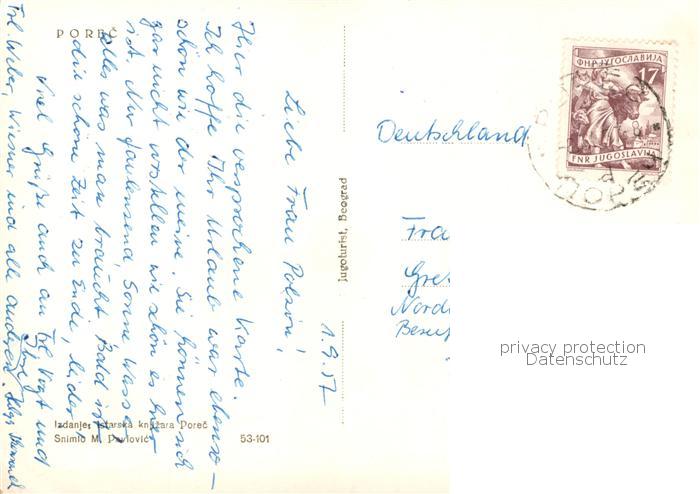 POREČ
1.9.57
Liebe Frau Polzin!
Hier die versprochene Karte.
Ich hoffe Ihr Urlaub war ebenso
schön wie der meine. Sie können sich
gar nicht vorstellen wie schön es hier
ist. Nur faulenzend, Sonne, Wasser
alles was man braucht. Bald ist
die schöne Zeit zu Ende, leider.
Viel Grüße auch an Frl. Vogt und
Frl. Weber, Wiesner und alle anderen.
Izdanje: Istarska knjižara Poreč
Snimio M. Pavlović
53-101
Jugoturist, Beograd
ФНР ЈУГОСЛАВИЈА
17
FNR JUGOSLAVIJA
Deutschland
Fra
Gre
Nord
privacy protection
Datenschutz